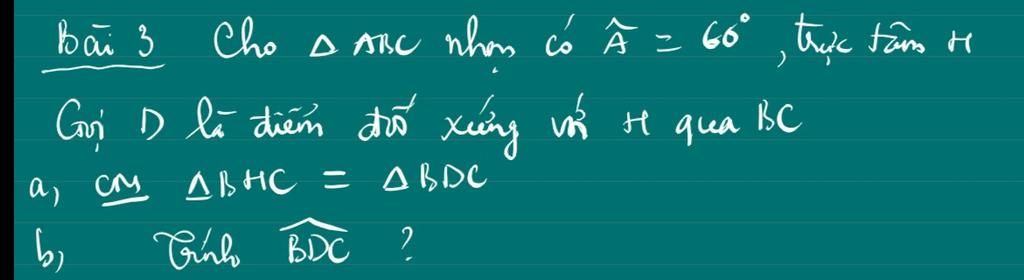 Bài 3 Cho Δ ABC nhọn có Â = 60°, trực tâm H
Gọi D là điểm đối xứng với H qua BC
a, CM ΔBHC = ΔBDC
b, Tính BDC ?